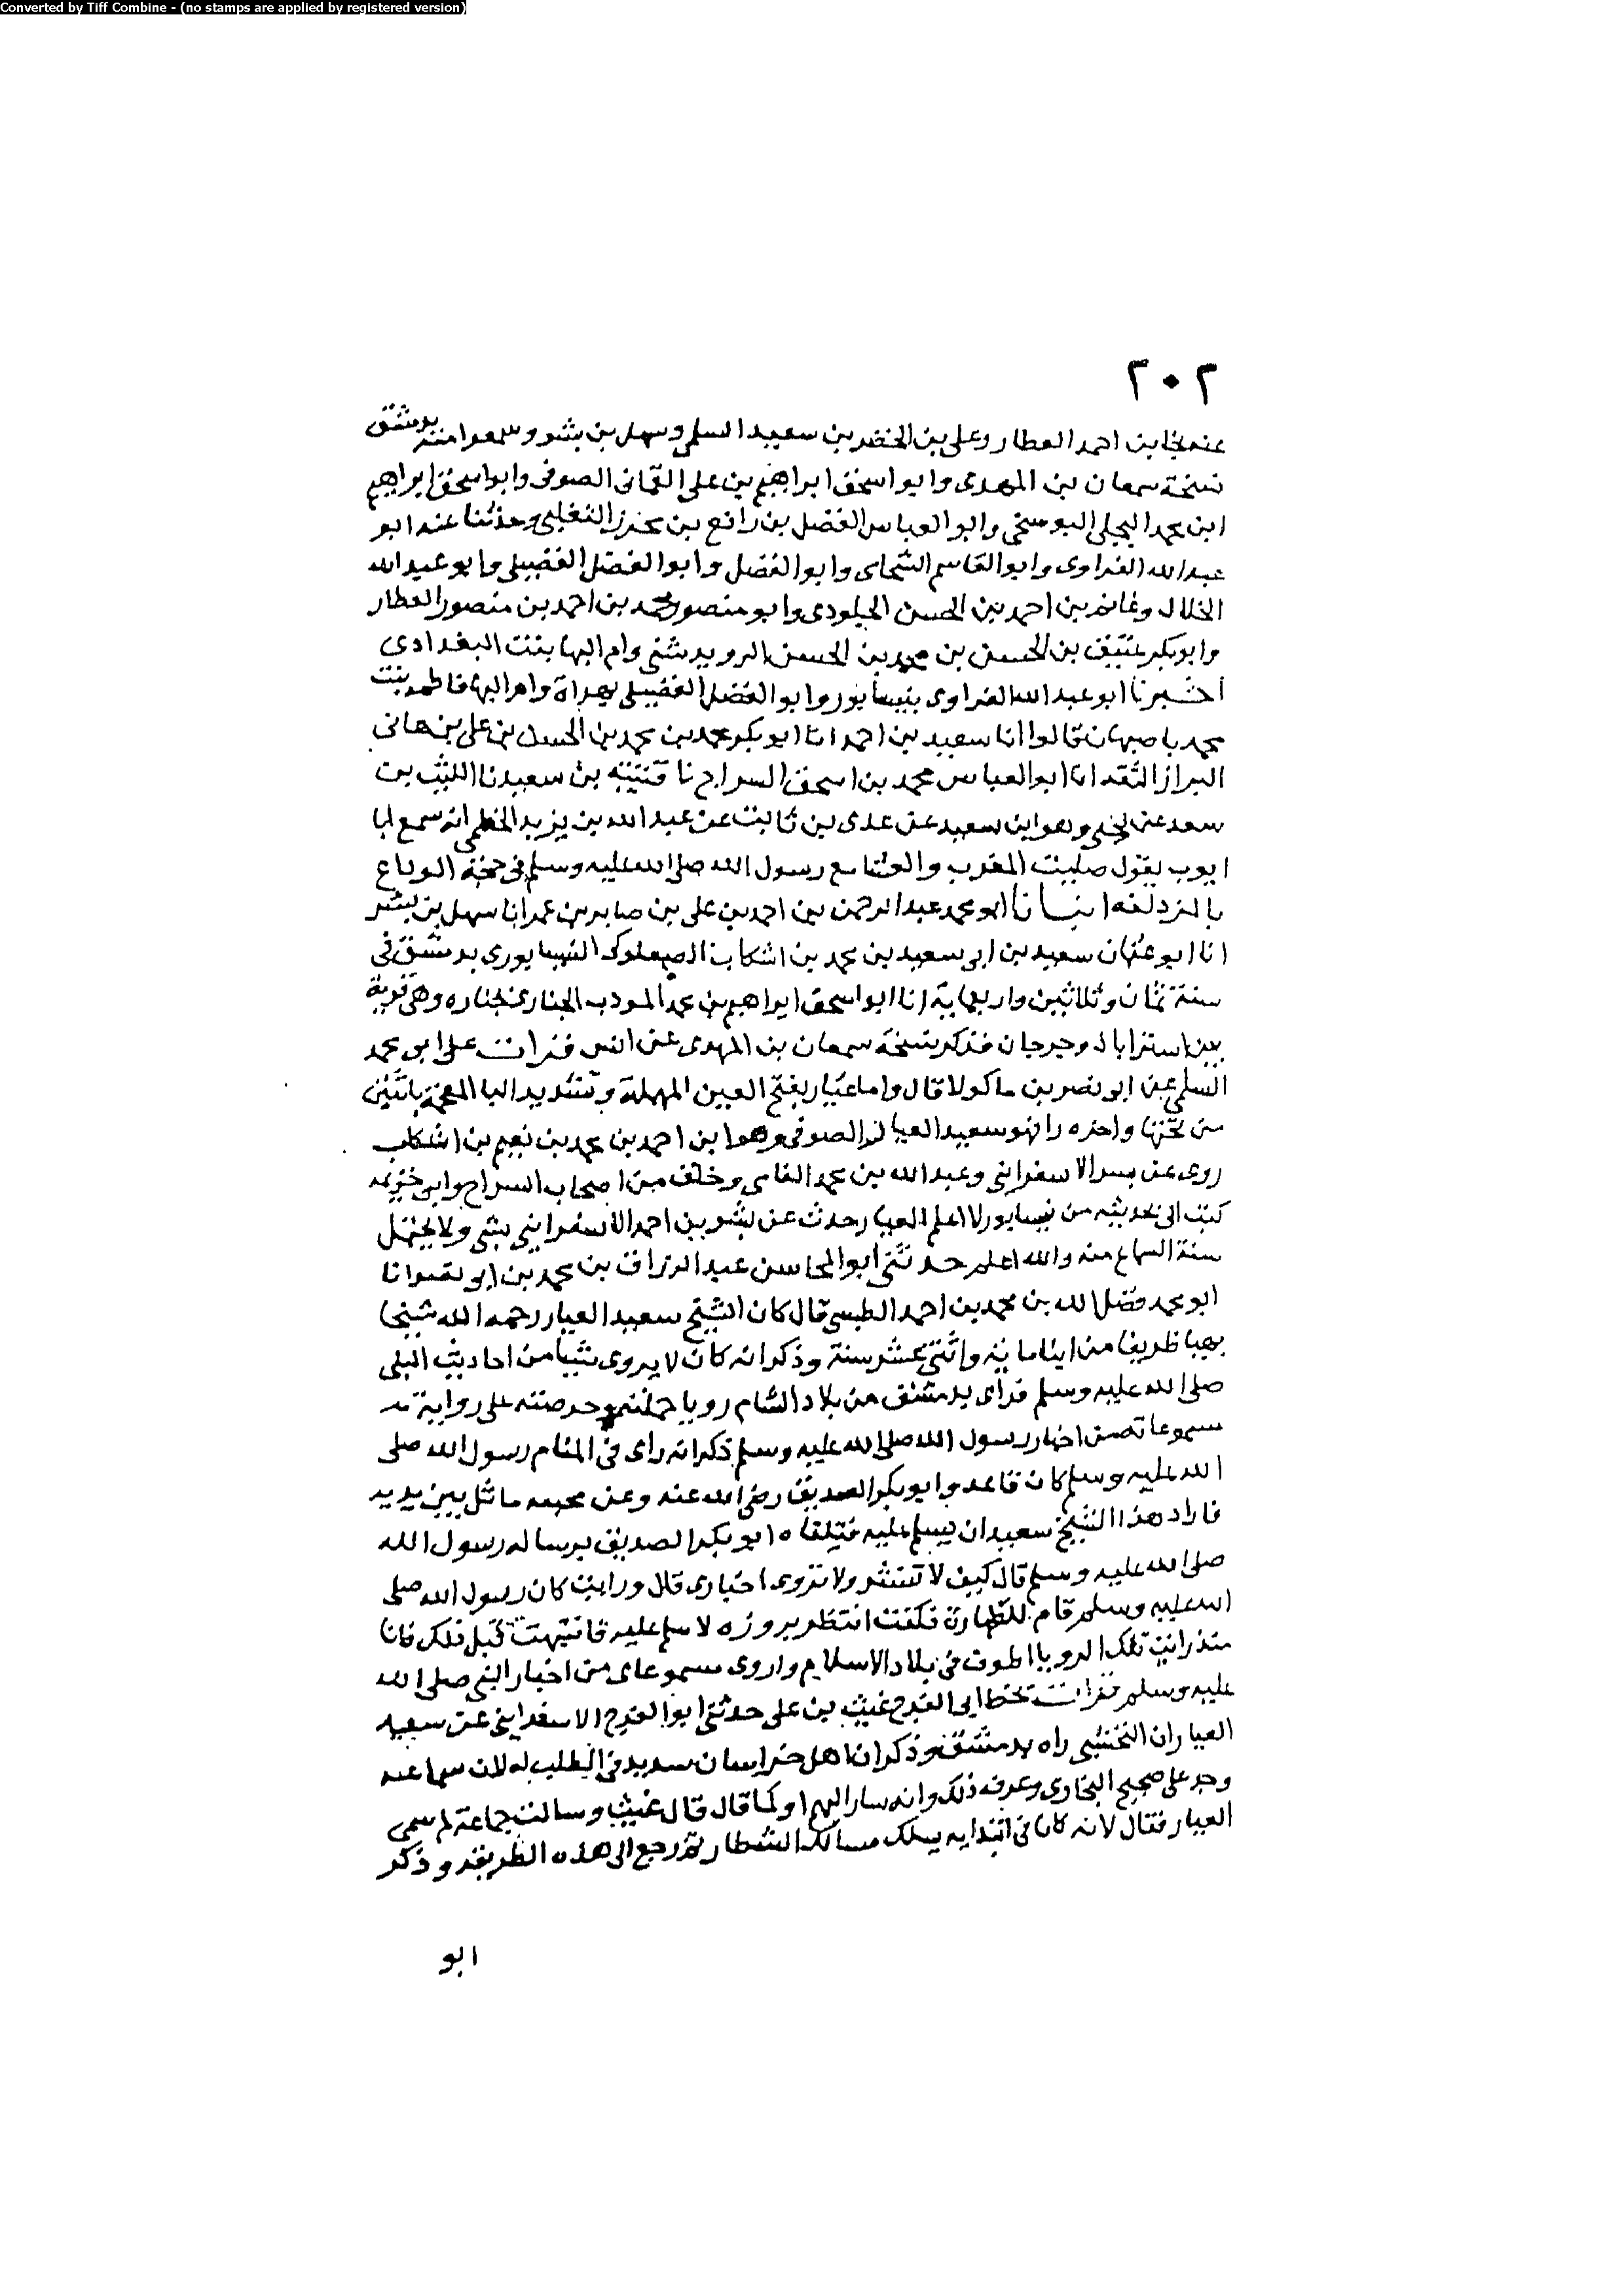 Converted by Tiff Combine - (no stamps are applied by registered version)
٣٠٢
عنه نجا بن احمد العطار وعلى بن الخضر بن سعيد السلمى وسهل بن بشر وسمعوا منه بدمشق
نسخة سمعان بن المهدى وابو اسحق ابراهيم بن على القبانى الصوفى وابو اسحق ابراهيم
ابن محمد البجلى البوسنجى وابو العباس الفضل بن رافع بن محرز التغلبى وحدثنا عنه ابو
عبد الله الفراوى وابو القاسم الشحامى وابو الفضل وابو الفضل الفضيلى وابو عبد الله
الخلال وغانم بن احمد بن الحسن الجلودى وابو منصور محمد بن احمد بن منصور العطار
وابو بكر عتيق بن الحسين بن محمد بن الحسن الرويدشتى وام البها بنت البغدادى
أخبرنا ابو عبد الله الفراوى بنيسابور وابو الفضل الفضيلى بهراة وام البها فاطمة بنت
محمد باصبهان قالوا انا سعيد بن احمد انا ابو بكر محمد بن محمد بن الحسن بن على بن هانى
البزاز الثقة انا ابو العباس محمد بن اسحق السراج نا قتيبة بن سعيد نا الليث بن
سعد عن يحيى وهو ابن سعيد عن عدى بن ثابت عن عبد الله بن يزيد الخطمى انه سمع ابا
ايوب يقول صليت المغرب والعشا مع رسول الله صلى الله عليه وسلم فى حجة الوداع
بالمزدلفة انبانا ابو محمد عبد الرحمن بن احمد بن على بن صابر بن عمر انا سهل بن بشر
انا ابو عثمان سعيد بن ابى سعيد بن محمد بن اشكاب الصعلوكى النيسابورى بدمشق فى
سنة ثمان وثلاثين واربعماية انا ابو اسحق ابراهيم بن محمد المودب الجنارى بجناره وهى قرية
بين استراباذ وجرجان فذكر نسخة سمعان بن المهدى عن انس قرات على ابو محمد
السلمى عن ابو نصر بن ماكولا قال واما عيار بفتح العين المهملة وتشديد اليا المعجمة باثنين
من تحتها واخره را فهو سعيد العيار الصوفى وهو ابن احمد بن محمد بن نعيم بن اشكاب
روى عن بسر الاسفراينى وعبد الله بن محمد الفامى وخلق من اصحاب السراج وابى خزيمه
كتب الى بحديثه من نيسابور لا اعلم العيار حدث عن بشر بن احمد الاسفراينى بشى ولا يحتمل
سنة السماع منه والله اعلم حدثنى ابو المحاسن عبد الرزاق بن محمد بن ابو نصر انا
ابو محمد فضل الله بن محمد بن احمد الطبسى قال كان الشيخ سعيد العيار رحمه الله شيخا
بهيا ظريفا من ابنا ماية واثنتى عشر سنة وذكر انه كان لا يروى شيا من احاديث النبى
صلى الله عليه وسلم فراى بدمشق من بلاد الشام رويا حملته وحرصته على رواية
مسموعاته من اخبار رسول الله صلى الله عليه وسلم ذكر انه راى فى المنام رسول الله صلى
الله عليه وسلم كان قاعد وابو بكر الصديق رضى الله عنه وعن محبيه ماثل بين يديه
فاراد هذا الشيخ سعيد ان يسلم عليه فتلقاه ابو بكر الصديق برسالة رسول الله
صلى الله عليه وسلم قال كيف لا تنشر ولا تروى اخبارى قال ورايت كان رسول الله صلى
الله عليه وسلم قام للطهارة فكنت انتظر بروزه لاسلم عليه فانتبهت قبل ذلك فانا
منذ رايت تلك الرويا اطوف فى بلاد الاسلام واروى مسموعاى من اخبار النبى صلى الله
عليه وسلم قرات بخط ابى الفرج غيث بن على حدثنى ابو الفرج الاسفراينى عن سعيد
العيار ان النخشبى راه بدمشق وذكر ان اهل خراسان سديد فى الطلب له لان سماعه
وجد على صحيح البخارى وعرفه ذلك وانه سار اليهم او كما قال قال غيث وسالت جماعة لم سمى
العيار فقال لانه كان فى ابتدايه يسلك مسالك الشطار ثم رجع الى هذه الطريقه وذكر
ابو